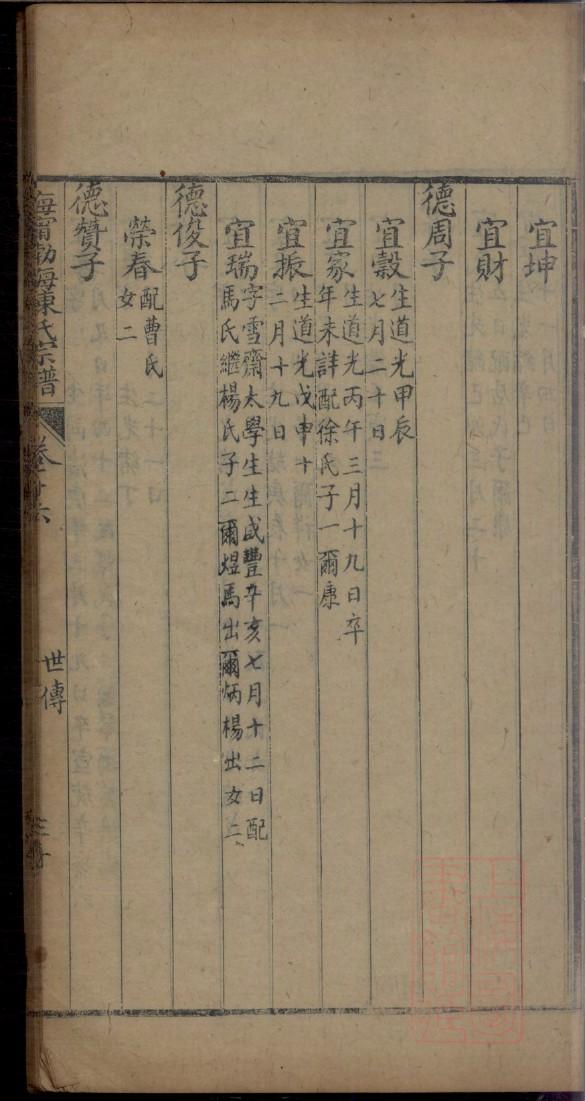 宜坤
宜財
德周子
宜穀 生道光甲辰
七月二十日
宜家 生道光丙午三月十九日卒
年未詳配徐氏子一爾康
宜振 生道光戊申十
二月十九日
宜瑞 字雪齋太學生生咸豐辛亥七月十二日配
馬氏繼楊氏子二爾煜馬出爾炳楊出女二
德俊子
榮春 配曹氏
女二
德贊子
海寧渤海陳氏宗譜 卷十六 世傳